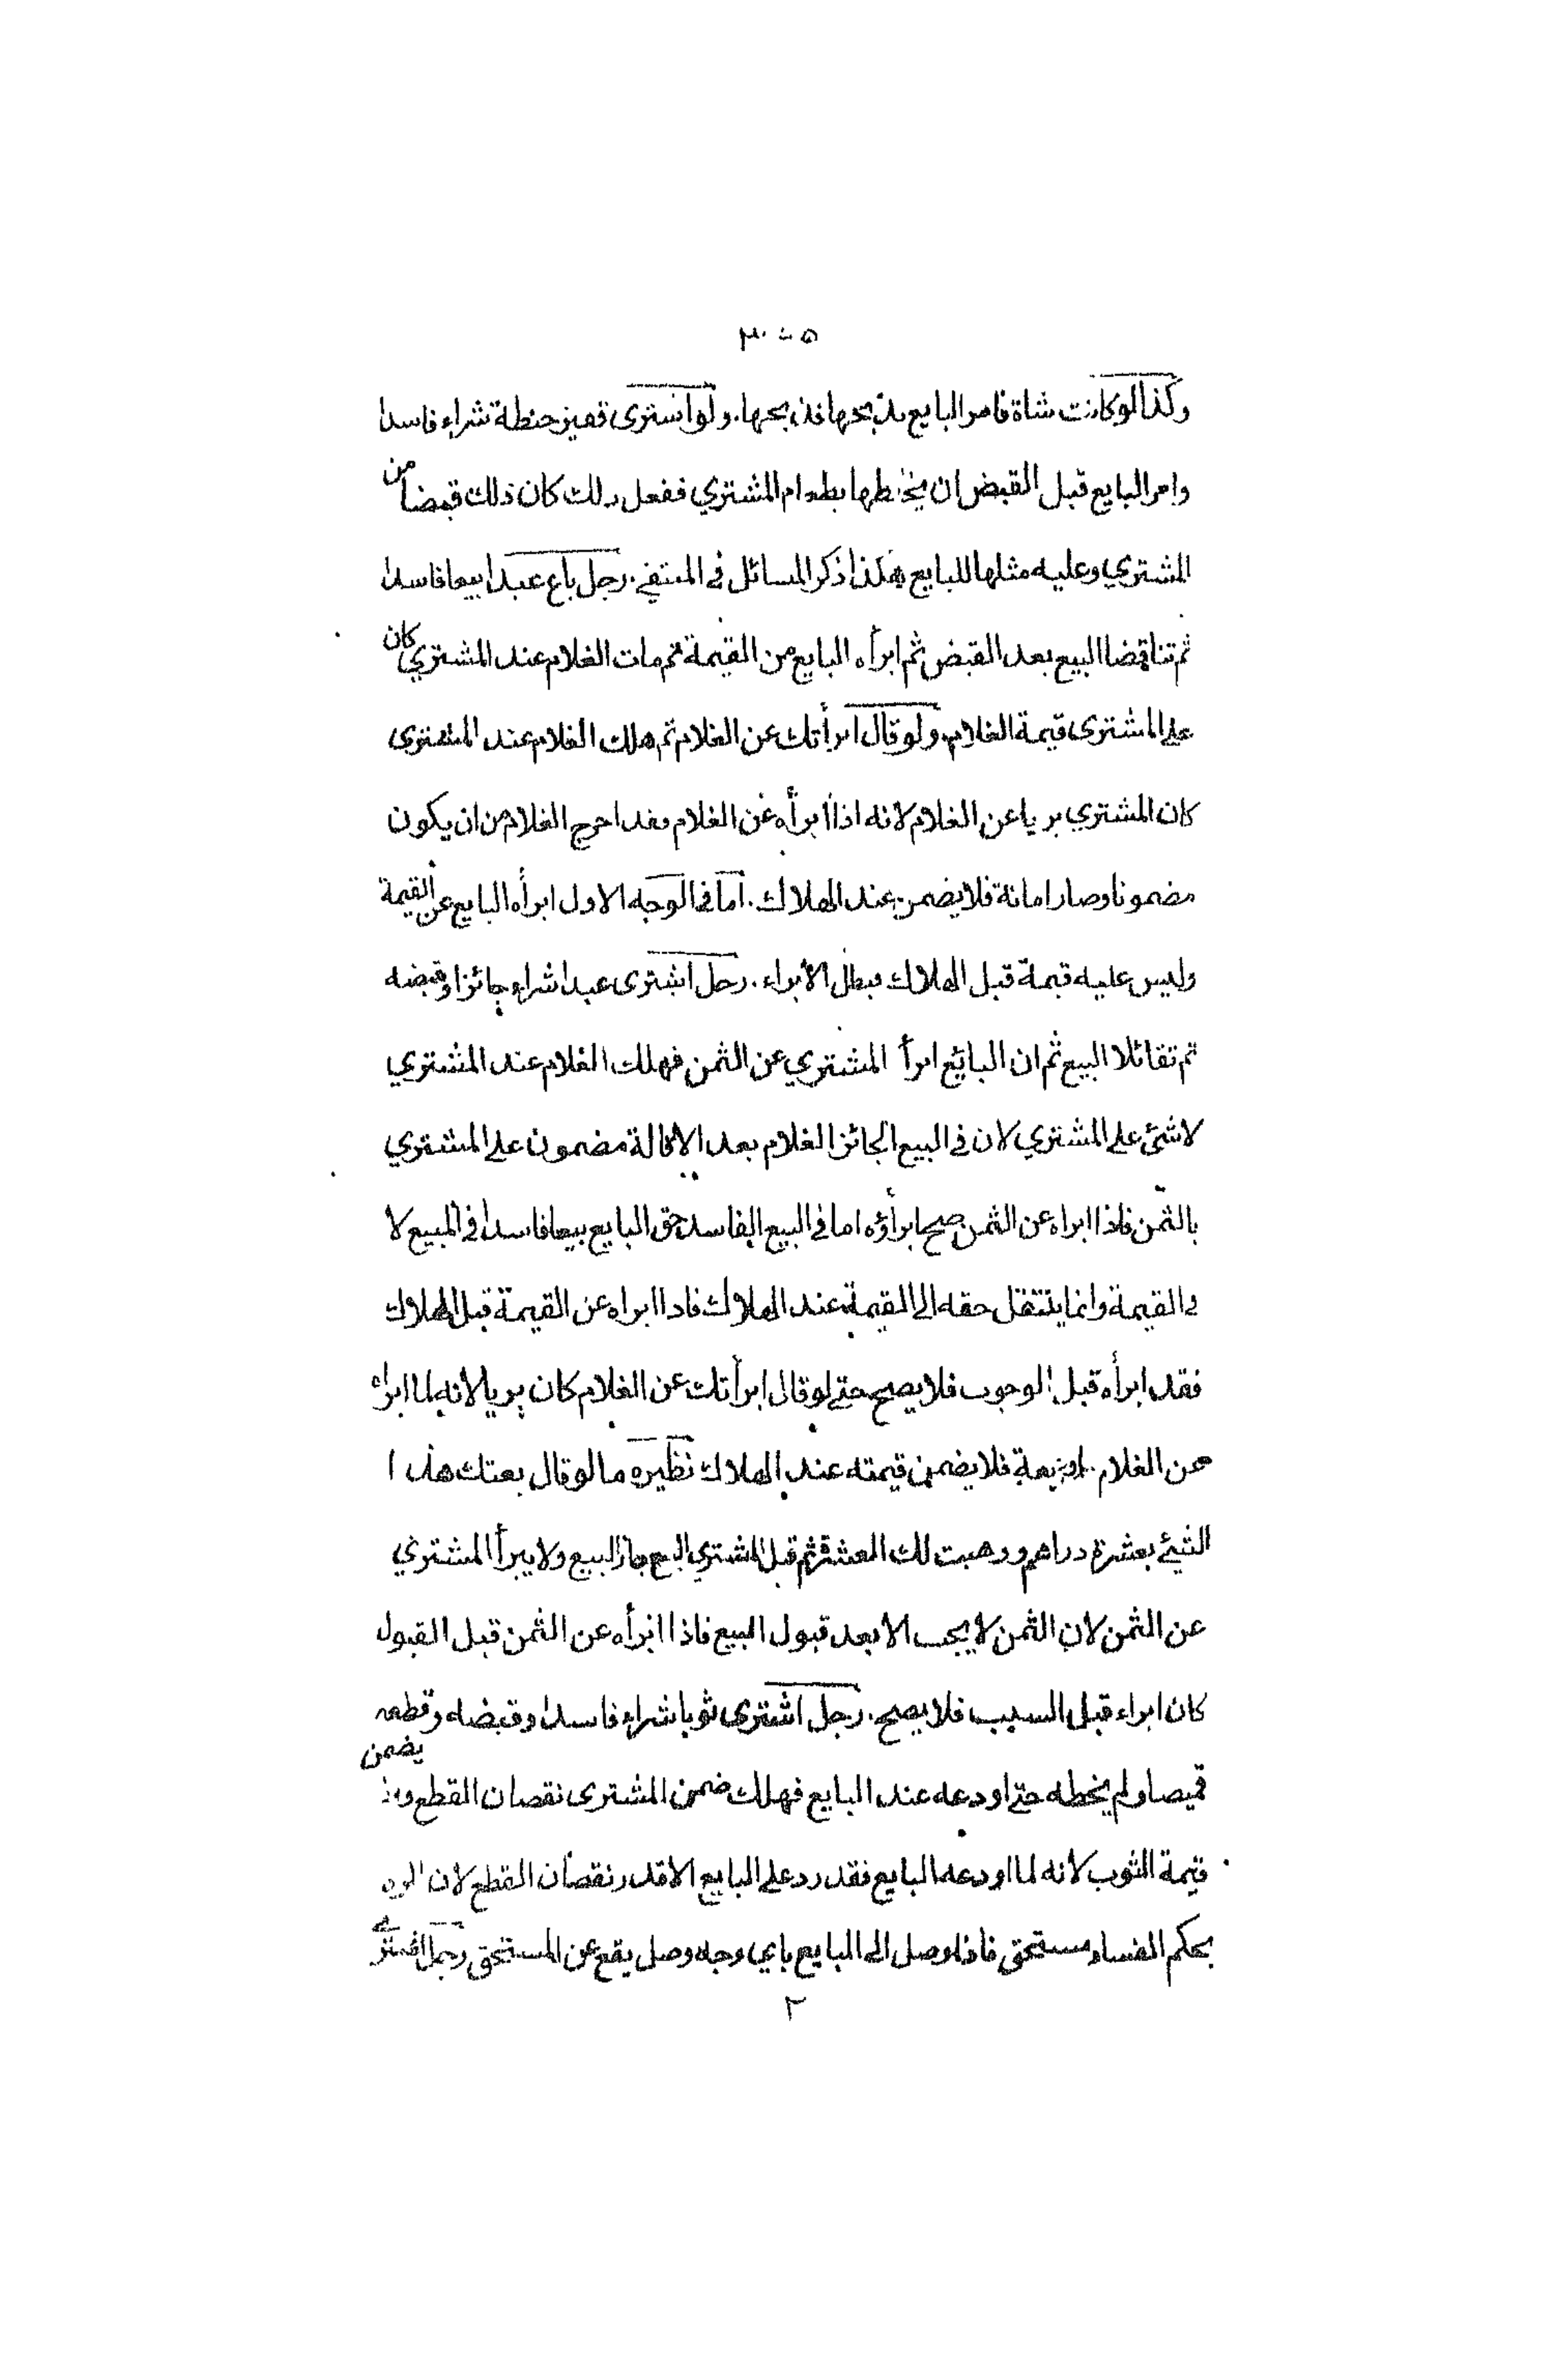 وكذا لو كانت شاة فامر البايع بذبحها فذبحها. ولو اشترى قفيز حنطة شراء فاسدا
وامر البايع قبل القبض ان يخلطها بطعام المشتري ففعل ذلك كان ذلك قبضا من
المشتري وعليه مثلها للبايع هكذا ذكر المسائل في المنتقى. رجل باع عبدا بيعا فاسدا
ثم تناقضا البيع بعد القبض ثم ابرأه البايع من القيمة ثم مات الغلام عند المشتري كان
على المشترى قيمة الغلام. ولو قال ابرأتك عن الغلام ثم هلك الغلام عند المشترى
كان المشتري بريا عن الغلام لانه اذا ابرأه عن الغلام فقد اخرج الغلام من ان يكون
مضمونا وصار امانة فلا يضمن عند الهلاك. اما في الوجه الاول ابرأه البايع عن القيمة
وليس عليه قيمة قبل الهلاك فبطل الابراء. رجل اشترى عبدا شراء جائزا وقبضه
ثم تقائلا البيع ثم ان البائع ابرأ المشتري عن الثمن فهلك الغلام عند المشتري
لا شئ على المشتري لان في البيع الجائز الغلام بعد الاقالة مضمون على المشتري
بالثمن فاذا ابراه عن الثمن صح ابرأؤه اما في البيع الفاسد حق البايع بيعا فاسدا في المبيع لا
في القيمة وانما ينتقل حقه الى القيمة عند الهلاك فاذا ابراه عن القيمة قبل الهلاك
فقد ابرأه قبل الوجوب فلا يصح حتى لو قال ابرأتك عن الغلام كان بريا لانه لما ابراه
عن الغلام فلا يضمن قيمته عند الهلاك نظيره ما لو قال بعتك هذا
الشئ بعشرة دراهم ووهبت لك العشرة ثم قبل المشتري البيع جاز البيع ولا يبرأ المشتري
عن الثمن لان الثمن لا يجب الا بعد قبول البيع فاذا ابرأه عن الثمن قبل القبول
كان ابراء قبل السبب فلا يصح. رجل اشترى ثوبا شراء فاسدا وقبضه وقطعه
قميصا ولم يخطه حتى اودعه عند البايع فهلك ضمن المشترى نقصان القطع ولا يضمن
قيمة الثوب لانه لما اودعه البايع فقد رد على البايع الا قدر نقصان القطع لان الرد
بحكم الفساد مستحق فاذا وصل الى البايع باي وجه وصل يقع عن المستحق رجل اشترى
٢